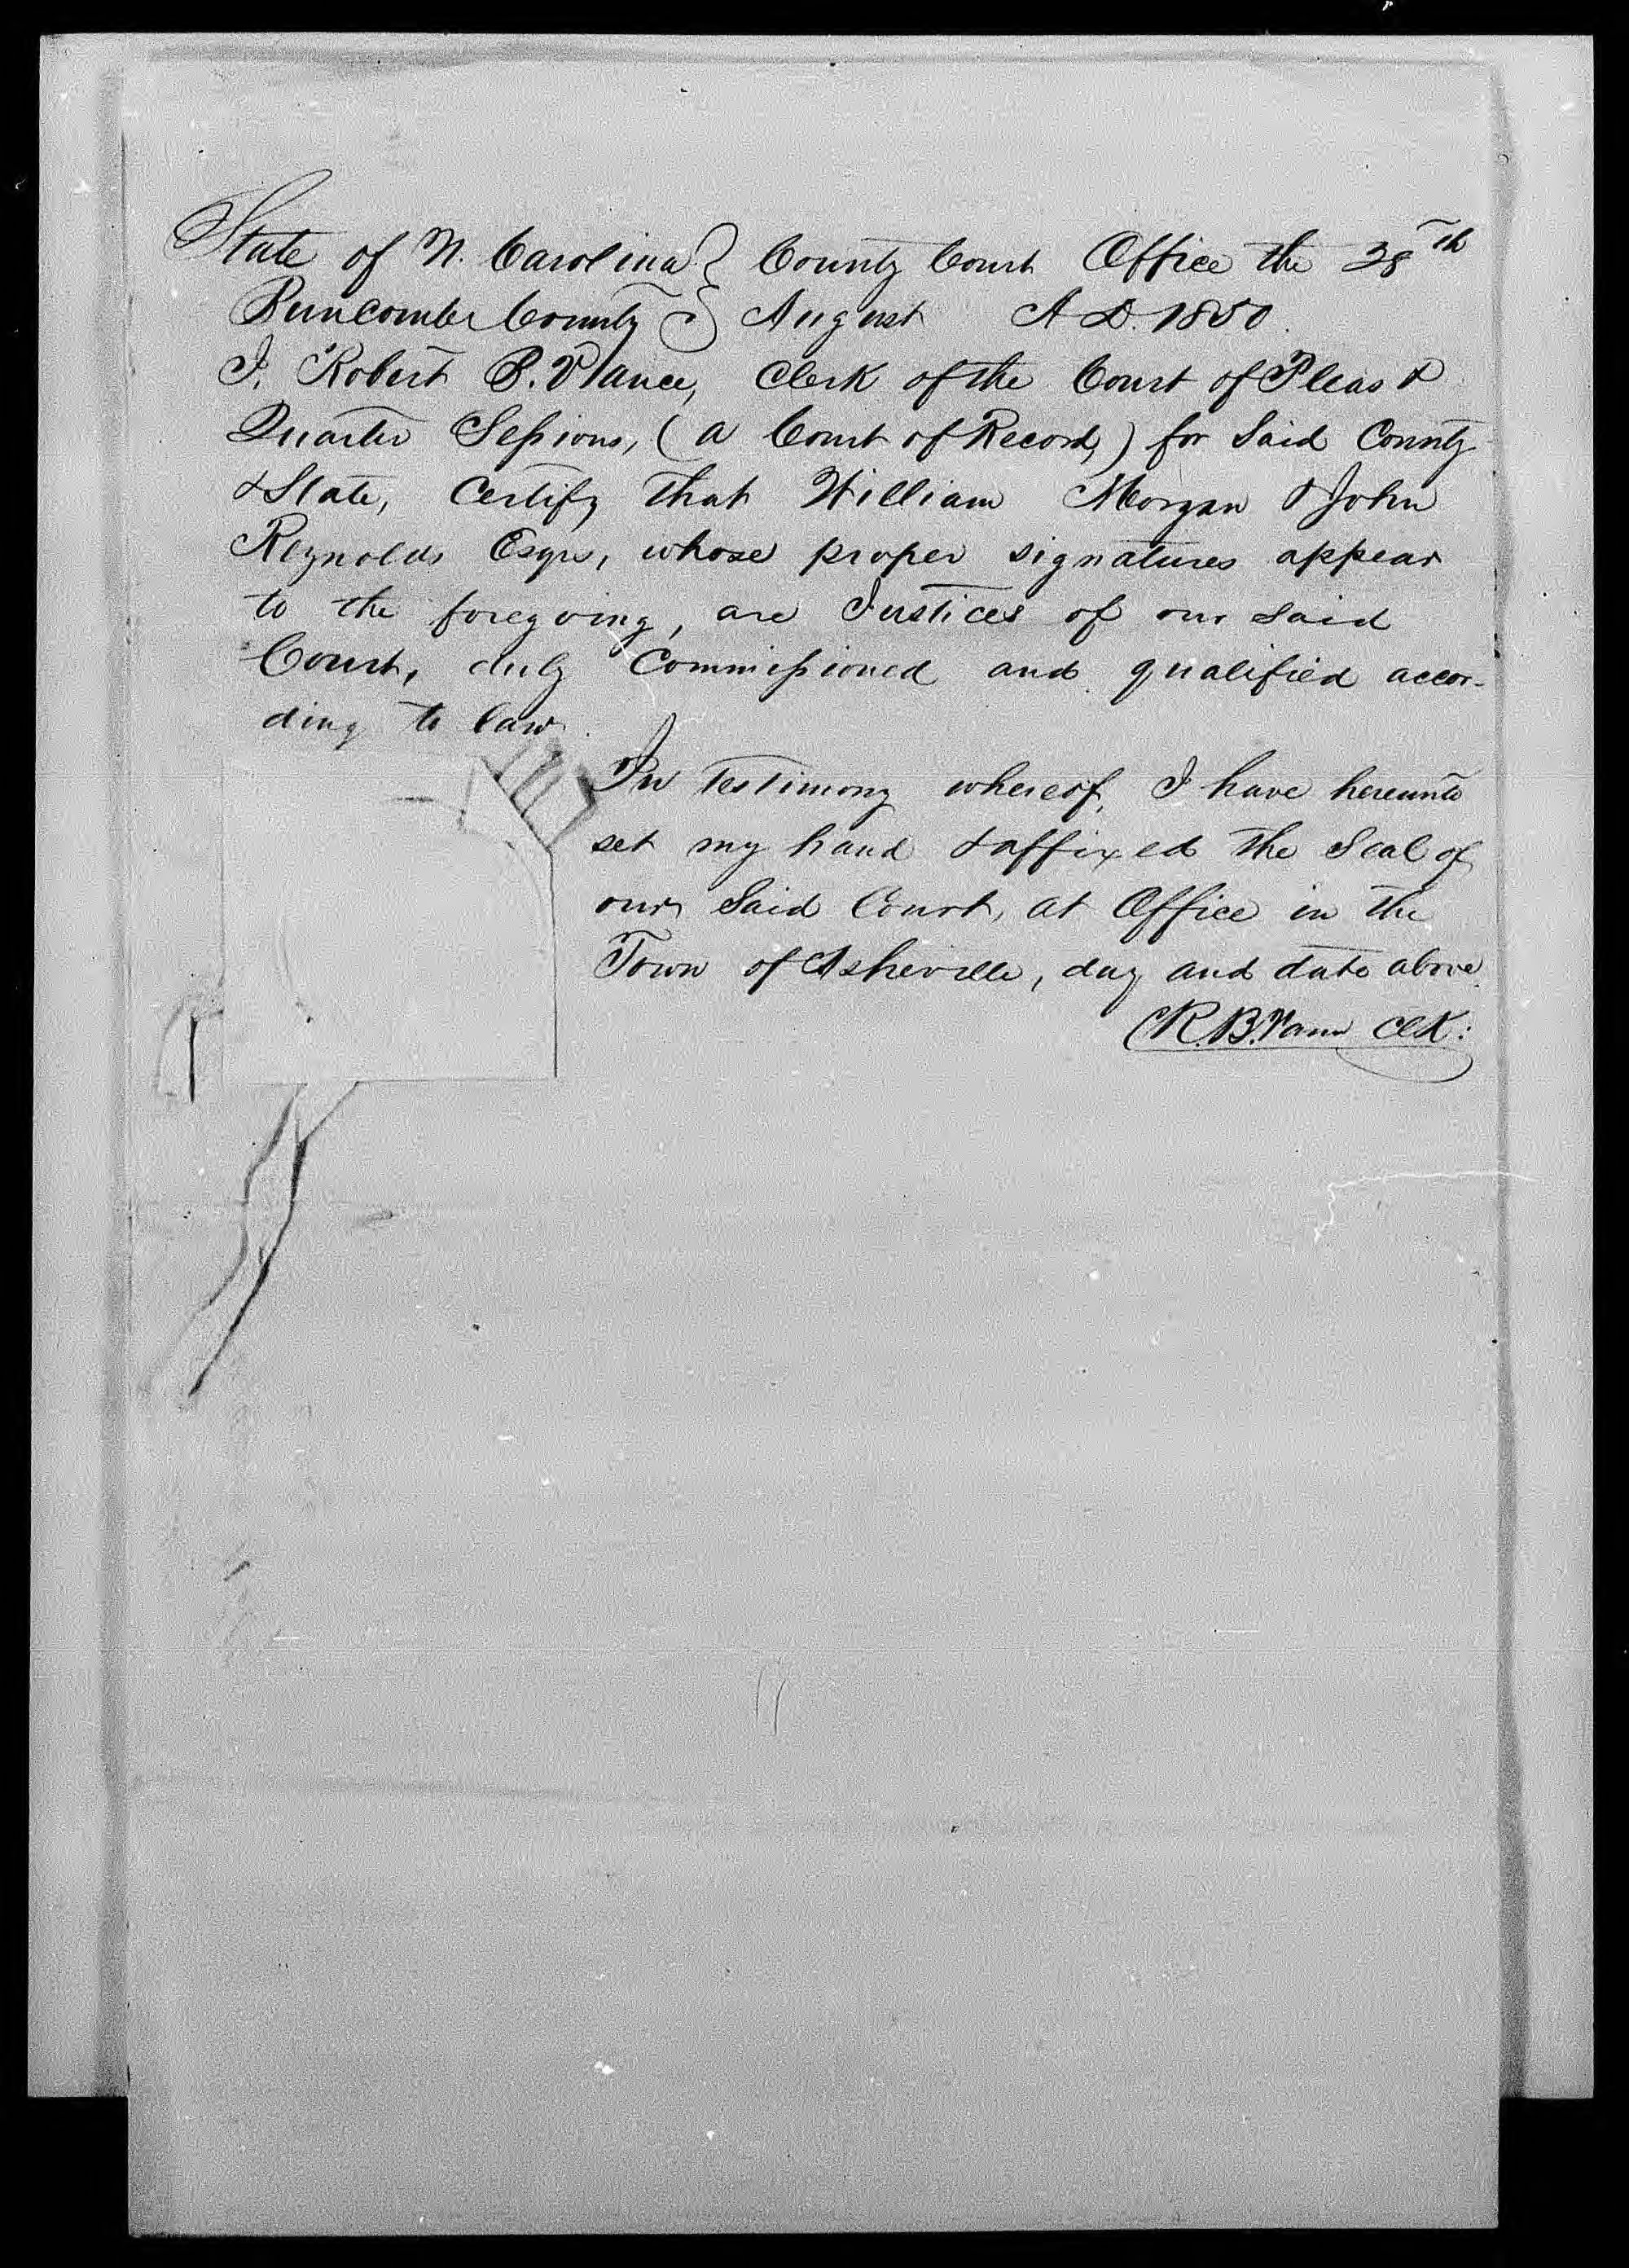 State of N. Carolina } County Court Office the 28th
Buncombe County } August A D. 1850.
I, Robert B. Vance, Clerk of the Court of Pleas &
Quarter Sessions, (a Court of Record,) for Said County
& State, Certify that William Morgan & John
Reynolds Esqrs, whose proper signatures appear
to the foregoing, are Justices of our said
Court, duly Commissioned and qualified accor-
ding to law.
In testimony whereof, I have hereunto
set my hand & affixed the Seal of
our Said Court, at Office in the
Town of Asheville, day and date above.
R. B. Vance Clk: